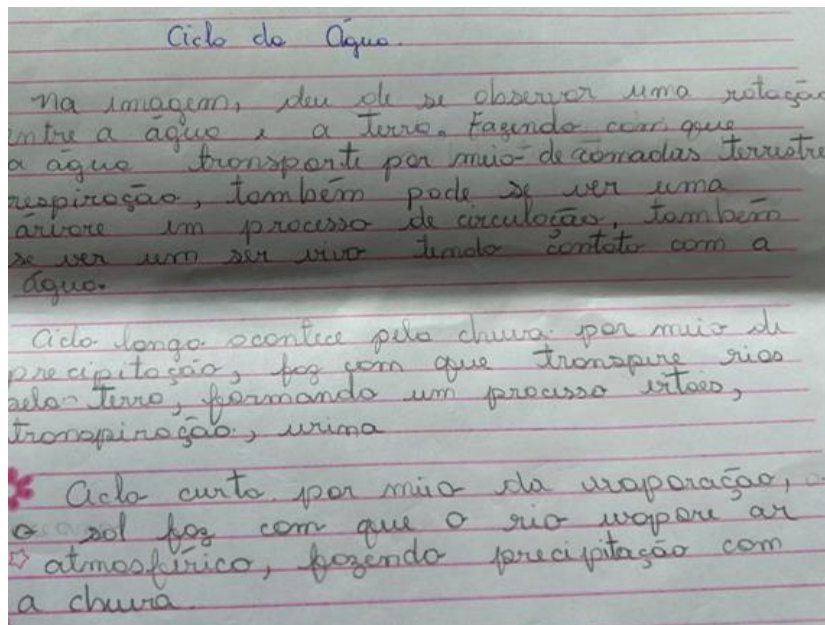 Ciclo da Água.
na imagem, deu de se observar uma rotação
entre a água e a terra. Fazendo com que
a água transporte por meio de camadas terrestre
respiração, também pode se ver uma
árvore em processo de circulação, também
se ver um ser vivo tendo contato com a
água.
Ciclo longo acontece pela chuva por meio de
precipitação, faz com que transpire rios
pela terra, formando um processo
transpiração, urina
Ciclo curto por meio da evaporação,
o sol faz com que o rio evapore ar
atmosférico, fazendo precipitação com
a chuva.